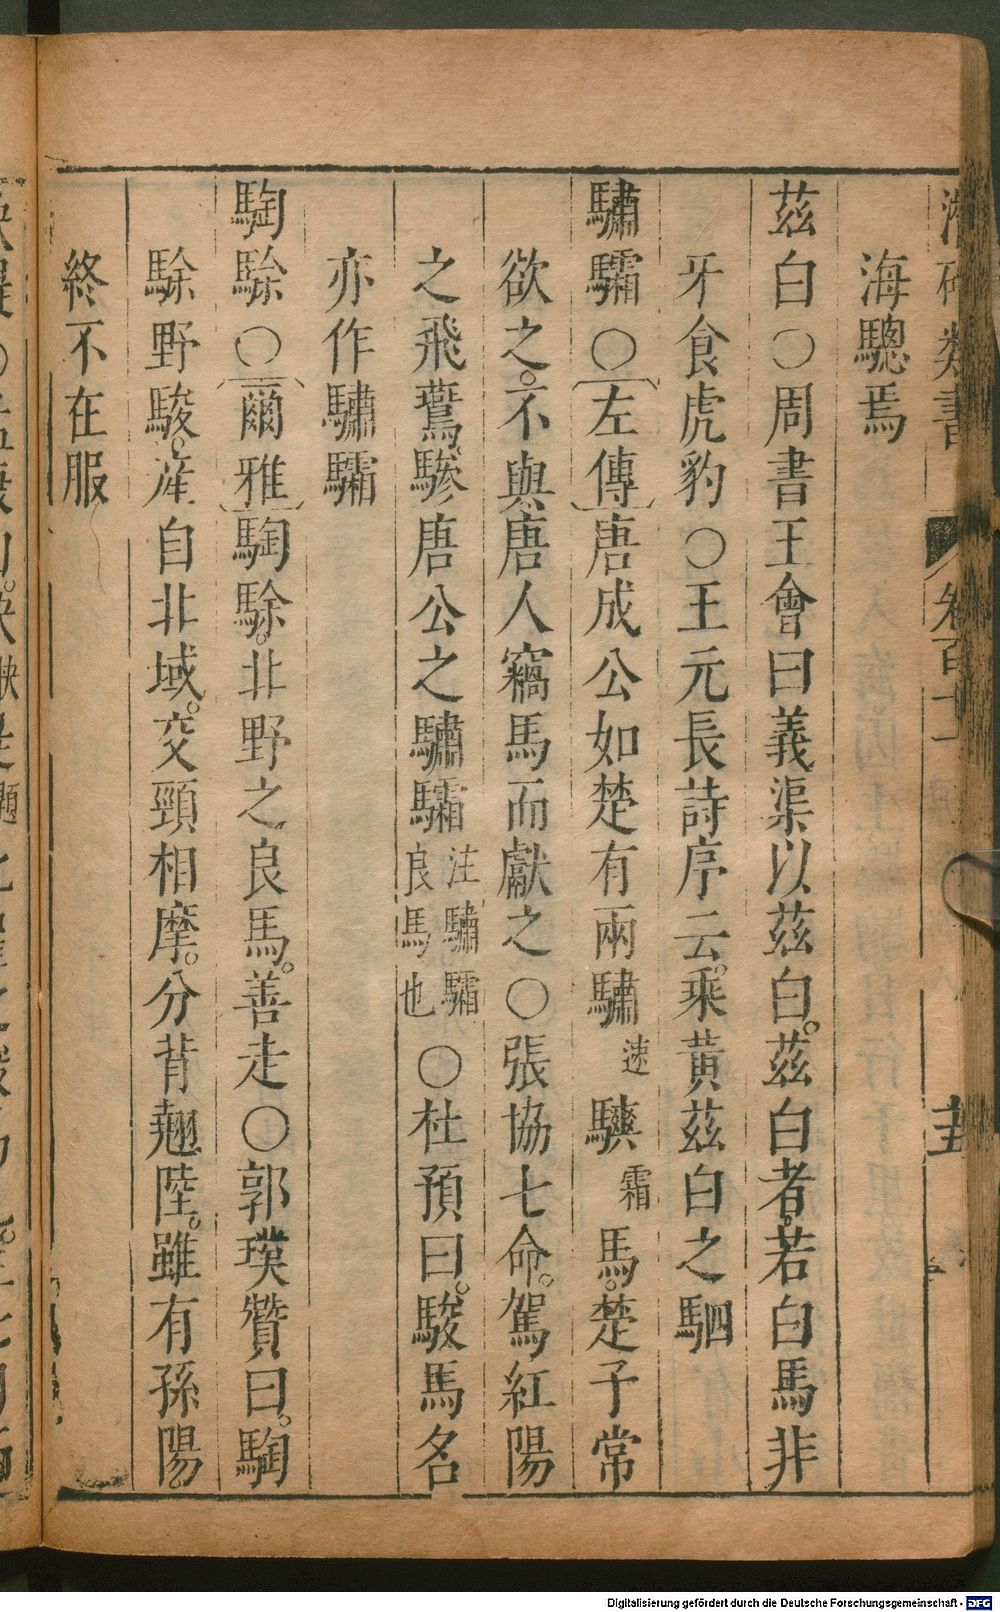 潛確類書 卷百十一
海驄焉
茲白○周書王會曰義渠以茲白。茲白者。若白馬非
牙食虎豹○王元長詩序云。乘黃茲白之駟
驌驦○[左傳]唐成公如楚有兩驌速驦霜馬。楚子常
欲之。不與唐人竊馬而獻之○張協七命。駕紅陽
之飛鷰。驂唐公之驌驦注驌驦良馬也○杜預曰。駿馬名
亦作驌驦
騊駼○[爾雅]騊駼。北野之良馬。善走○郭璞贊曰。騊
駼野駿。産自北域。交頸相摩。分背翹陸。雖有孫陽
終不在服
Digitalisierung gefördert durch die Deutsche Forschungsgemeinschaft - DFG